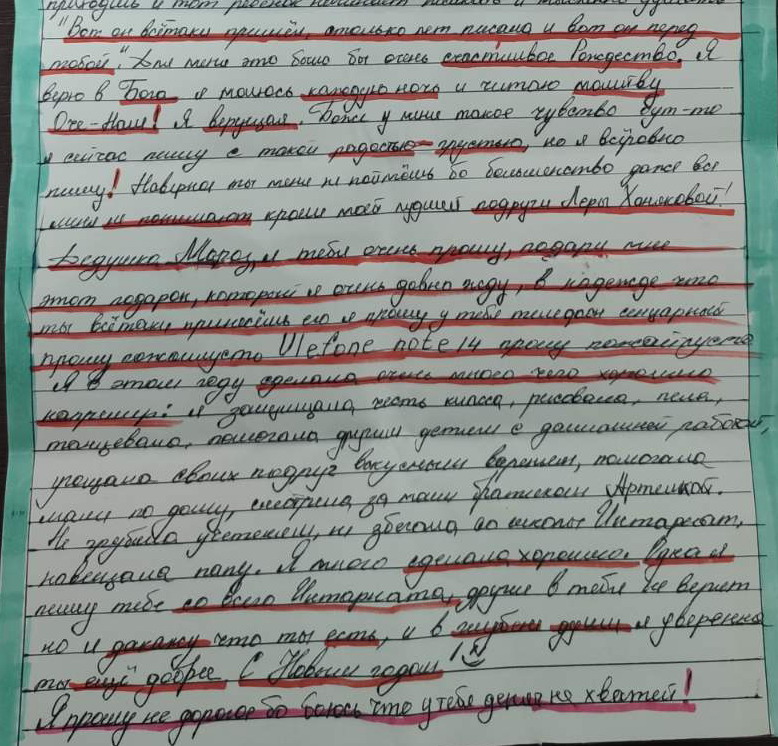 приходишь и тот ребёнок начинает
"Вот он всётаки пришёл, столько лет писала и вот он перед
тобой". Для меня это было бы очень счастливое Рождество. Я
верю в Бога я молюсь каждую ночь и читаю молитву
Оче-Наш! Я верущая. Боже у меня такое чувство бут-то
я сейчас пишу с такой радостью-грустью, но я всёровно
пишу! Наверное ты меня не поймёшь бо большенство даже все
меня не понимают кроме моей лудшей подруги Леры Хомяковой!
Дедушка Мороз, я тебя очень прошу, подари мне
этот подарок, который я очень давно жду, в надежде что
ты всётаки принесёшь его я прошу у тебя телефон сенцарный
прошу пожалуйсто Ulefone note 14 прошу пожайлуста
Я в этом году сделала очень много чего хорошого
например: я защищала честь класса, рисовала, пела,
танцевала, помогала другим детям с домашней работой,
угощала своих подруг вкусным варением, помогала
маме по дому, смотрела за моим братиком Артемкой.
Не грубила учетелям, не збегала со школы Интарнат,
навещала папу. Я много сделала хорошого. Одна я
пишу тебе со всего Интарната, другие в тебя не верят
но я дакажу что ты есть, и в глубине души я уверенна
ты ещё добрее С Новым годом!
Я прошу не дорогое бо боюсь что у тебя денег не хватей!